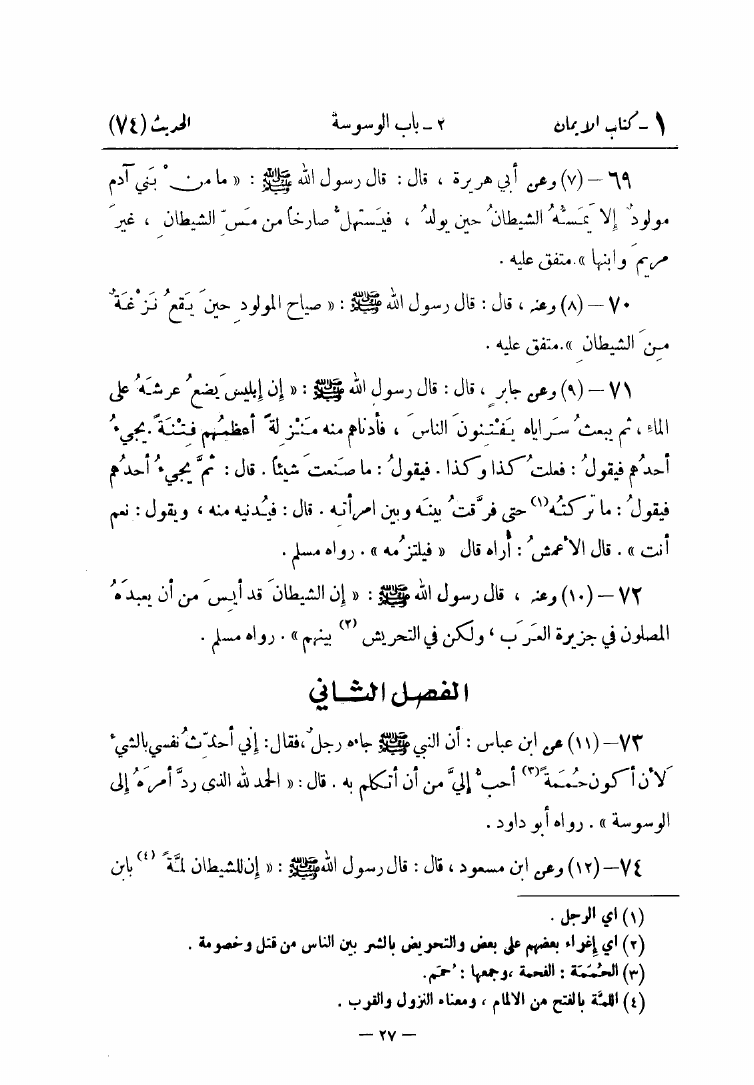 ١ - كتاب الايمان ٢ - باب الوسوسة الحديث (٧٤)
٦٩ – (٧) وعن أبي هريرة ، قال : قال رسول الله ﷺ : « ما من ْ بَني آدم
مولودٌ إلا يَمَسُّهُ الشيطانُ حين يولدُ ، فيَستهلُّ صارخاً من مَسِّ الشيطانِ ، غيرَ
مريمَ وابنها ».متفق عليه .
٧٠ – (٨) وعنه ، قال : قال رسول الله ﷺ : « صياح المولودِ حينَ يَقعُ نَزْغَةٌ
مِنَ الشيطانِ ».متفق عليه .
٧١ – (٩) وعن جابرٍ ، قال : قال رسول الله ﷺ : « إن إبليسَ يَضعُ عرشهُ على
الماءِ ، ثم يبعثُ سَراياه يَفْتِنونَ الناسَ ، فأدناهم منه مَنْزِلةً أعظمُهم فِتْنَةً .يجيءُ
أحدُهم فيقولُ : فعلتُ كذا وكذا . فيقولُ : ما صَنعتَ شيئاً . قال : ثمَّ يجيءُ أحدُهم
فيقولُ : ما تركتُه (١) حتى فرَّقتُ بينَه وبين امرأتِه . قال : فيُدنيه منه ، ويقول : نعم
أنت » . قال الأعمشُ : أُراه قال « فيلتزمُه » . رواه مسلم .
٧٢ – (١٠) وعنه ، قال رسول الله ﷺ : « إن الشيطانَ قد أيسَ من أن يعبدَهُ
المصلون في جزيرة العَرَب ، ولكن في التحريش (٢) بينهم » . رواه مسلم .
الفصل الثاني
٧٣ – (١١) عن ابن عباس : أن النبي ﷺ جاءه رجلٌ ،فقال: إني أحدِّثُ نفسي بالشيءِ
لأن أكون حُمَمَةً (٣) أحبُّ إليَّ من أن أتكلم به . قال : « الحمد لله الذي ردَّ أمرَهُ إلى
الوسوسة » . رواه أبو داود .
٧٤ – (١٢) وعن ابن مسعود ، قال : قال رسول الله ﷺ : « إن للشيطان لمَّةً (٤) بابن
(١) اي الرجل .
(٢) اي إغراء بعضهم على بعض والتحريض بالشر بين الناس من قتل وخصومة .
(٣) الحُمَمَة : الفحمة ،وجمعها : حُمَم.
(٤) اللمَّة بالفتح من الالمام ، ومعناه النزول والقرب .
– ٢٧ –